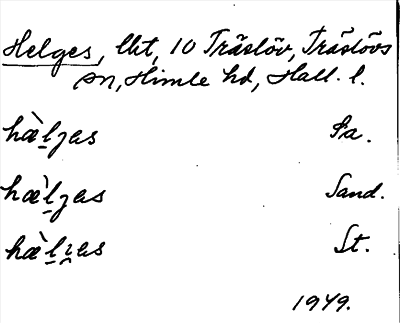 Helges, lht, 10 Träslöv, Träslövs
sn, Himle hd, Hall. l.
hæ̀l̠jas Pa.
hæ̀l̠jas Sand.
hæ̀l̠ı̯as St.
1949.